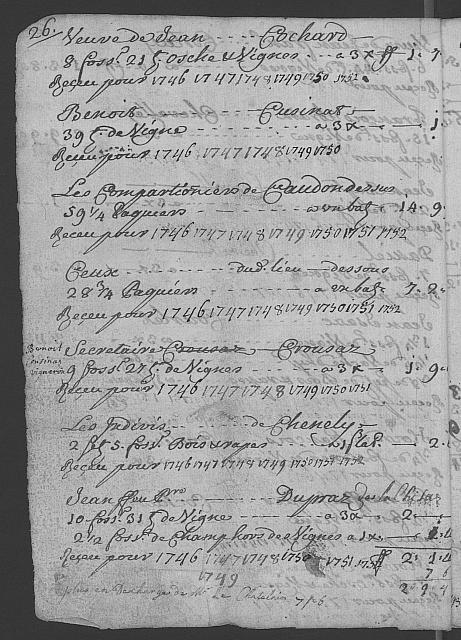 26.
Veuve de Jean Cochard
8 foss. 21 t. Osche & Vignes a 3x ff 1. 7.
Reçeu pour 1746 1747 1748 1749 1750 1752
Benoit Cusinat
39 t. de Vigne a 3x 1.
Reçeu pour 1746 1747 1748 1749 1750
Les Compartioniers de Caudondessus
59 1/4 Paquiers a un baz 14. 9.
Reçeu pour 1746 1747 1748 1749 1750 1751 1752
Ceux dud. lieu dessous
28 3/4 Paquiers a un baz 7. 2.
Reçeu pour 1746 1747 1748 1749 1750 1751 1752
Benoit
Cusinat
vigneron
Secretaire Crousaz Crousaz
9 foss. 21 t. de Vignes a 3x 1. 9.
Reçeu pour 1746 1747 1748 1749 1750 1751
Les Indivis de Chenely
2 5. foss. Bois & rapes 2.
Reçeu pour 1746 1747 1748 1749 1750 1751 1752
Jean ffeu Pre Dupraz
10 foss. 31 t. de Vigne a 3x 2.
2 1/2 foss. de Champ hors de Vignes a 1x 1. 4
Reçeu pour 1746 1747 1748 1750 1751 2. 1. 4
1749 7. 6
en Decharge de Mr. Le Chatelain 7 2. 9. 4